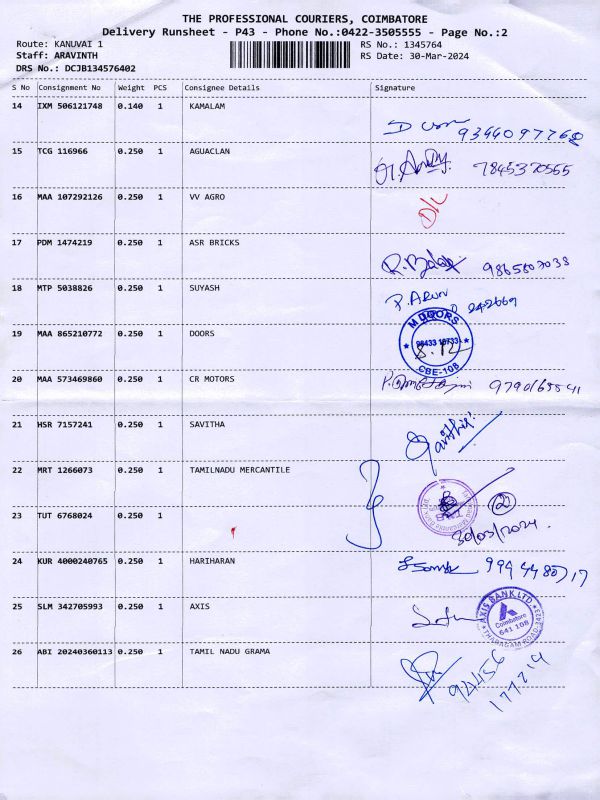 THE PROFESSIONAL COURIERS, COIMBATORE
Delivery Runsheet - P43 - Phone No.:0422-3505555 - Page No.:2
Route: KANUVAI 1
RS No.: 1345764
Staff: ARAVINTH
RS Date: 30-Mar-2024
DRS No.: DCJB134576402
S No Consignment No Weight PCS Consignee Details Signature
14 IXM 506121748 0.140 1 KAMALAM
15 TCG 116966 0.250 1 AGUACLAN
7845370555
16 MAA 107292126 0.250 1 VV AGRO
D/L
17 PDM 1474219 0.250 1 ASR BRICKS
18 MTP 5038826 0.250 1 SUYASH
P. ARUN
19 MAA 865210772 0.250 1 DOORS
M DOORS
CBE-108
20 MAA 573469860 0.250 1 CR MOTORS
21 HSR 7157241 0.250 1 SAVITHA
22 MRT 1266073 0.250 1 TAMILNADU MERCANTILE
2
23 TUT 6768024 0.250 1
30/03/2024.
24 KUR 4000240765 0.250 1 HARIHARAN
25 SLM 342705993 0.250 1 AXIS
AXIS BANK LTD
Coimbatore
641 108
26 ABI 20240360113 0.250 1 TAMIL NADU GRAMA
94456
177214